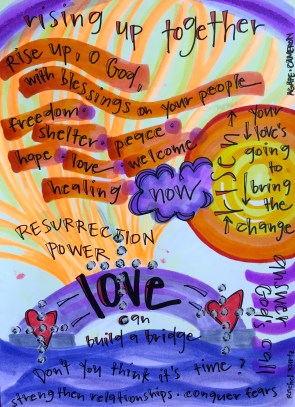 rising up together
Rise up, O God,
with blessings on your people
freedom
shelter peace
hope love welcome
healing
now
listen
your
love's
going
to
bring
the
change
RESURRECTION
POWER
love
can
build a bridge
answer
God's call
Don't you think it's time?
strengthen relationships. conquer fears